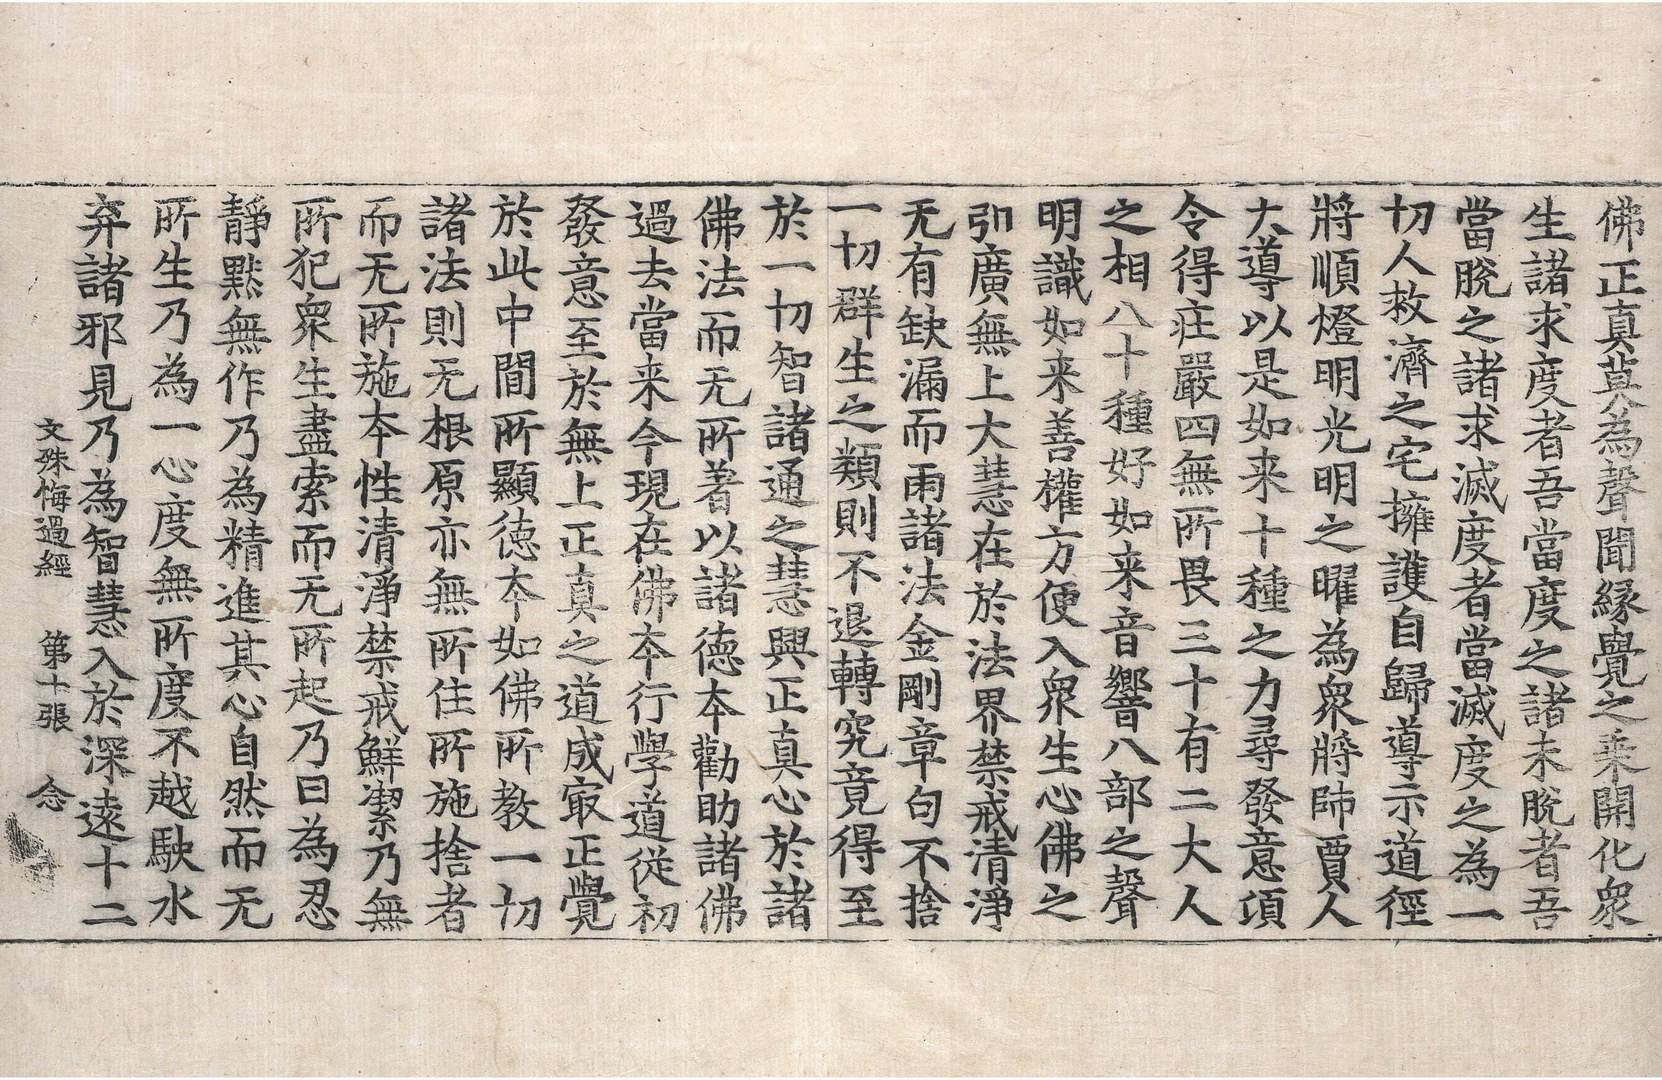 佛正真莫為聲聞緣覺之乘開化衆
生諸求度者吾當度之諸未脫者吾
當脫之諸求滅度者當滅度之為一
切人救濟之宅擁護自歸導示道徑
將順燈明光明之曜為衆將師賈人
大導以是如来十種之力尋發意頃
令得莊嚴四無所畏三十有二大人
之相八十種好如来音響八部之聲
明識如来善權方便入衆生心佛之
引廣無上大慧在於法界禁戒清淨
无有缺漏而雨諸法金剛章句不捨
一切群生之類則不退轉究竟得至
於一切智諸通之慧興正真心於諸
佛法而无所著以諸德本勸助諸佛
過去當来今現在佛本行學道從初
發意至於無上正真之道成㝡正覺
於此中間所顯德本如佛所教一切
諸法則无根原亦無所住所施捨者
而无所施本性清淨禁戒鮮潔乃無
所犯衆生盡索而无所起乃曰為忍
靜默無作乃為精進其心自然而无
所生乃為一心度無所度不越駛水
弃諸邪見乃為智慧入於深遠十二
文殊悔過經 第十張 念